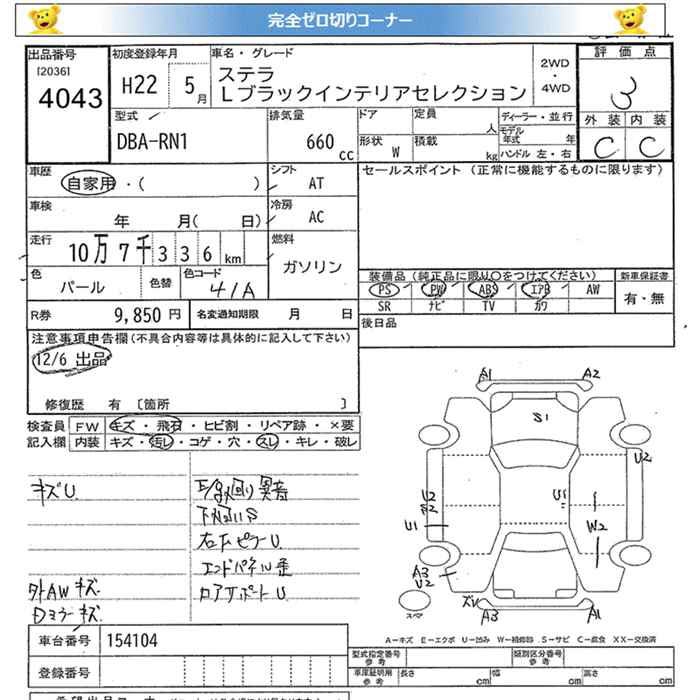 完全ゼロ切りコーナー
出品番号 初度登録年月 車名・グレード 評価点
[2036]
4043 H22 5月 ステラ
Lブラックインテリアセレクション 2WD・4WD 3
型式 排気量 ドア 定員 人 ディーラー・並行 外装 内装
DBA-RN1 660cc 形状 W 積載 kg モデル年式 年 C C
ハンドル 左・右
車歴 自家用・( ) シフト AT セールスポイント (正常に機能するものに限ります)
車検 年 月( 日) 冷房 AC
走行 10万7千336km 燃料 ガソリン
色 パール 色替 色コード 4/A
装備品(純正品に限り○をつけてください) 新車保証書
PS PW ABS エアB AW 有・無
SR ナビ TV カワ
R券 9,850円 名変通知期限 月 日 後日品
注意事項申告欄(不具合内容等は具体的に記入して下さい)
12/6 出品
修復歴 有 〔箇所 〕
検査員 FW キズ・飛石・ヒビ割・リペア跡・×要
記入欄 内装 キズ・汚レ・コゲ・穴・スレ・キレ・破レ
キズU 異音
右FピラーU
エンドパネル歪
外AWキズ ロアサポートU
Dミラーキズ
A1 A2
S1
U2
U2
U1
U1 W2
A3
U2
ズレ
スペア A3 A1
A－キズ E－エクボ U－凹み W－補修跡 S－サビ C－腐食 XX－交換済
車台番号 154104
型式指定番号 参考 類別区分番号 参考
登録番号 車庫証明用 参考 長さ cm 幅 cm 高さ cm